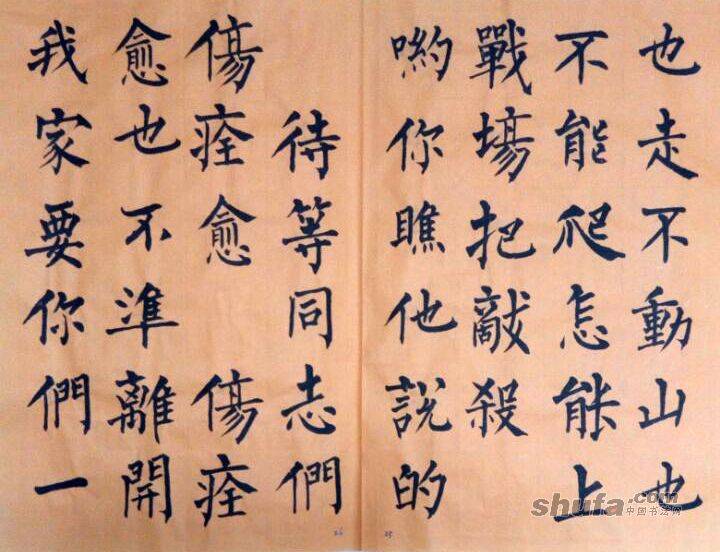 也走不動山也
不能爬怎能上
戰場把敵殺
喲你瞧他說的
待等同志們
傷痊愈 傷痊
愈也不準離開
我家要你們一
26 25
shufa.com
中国书法网